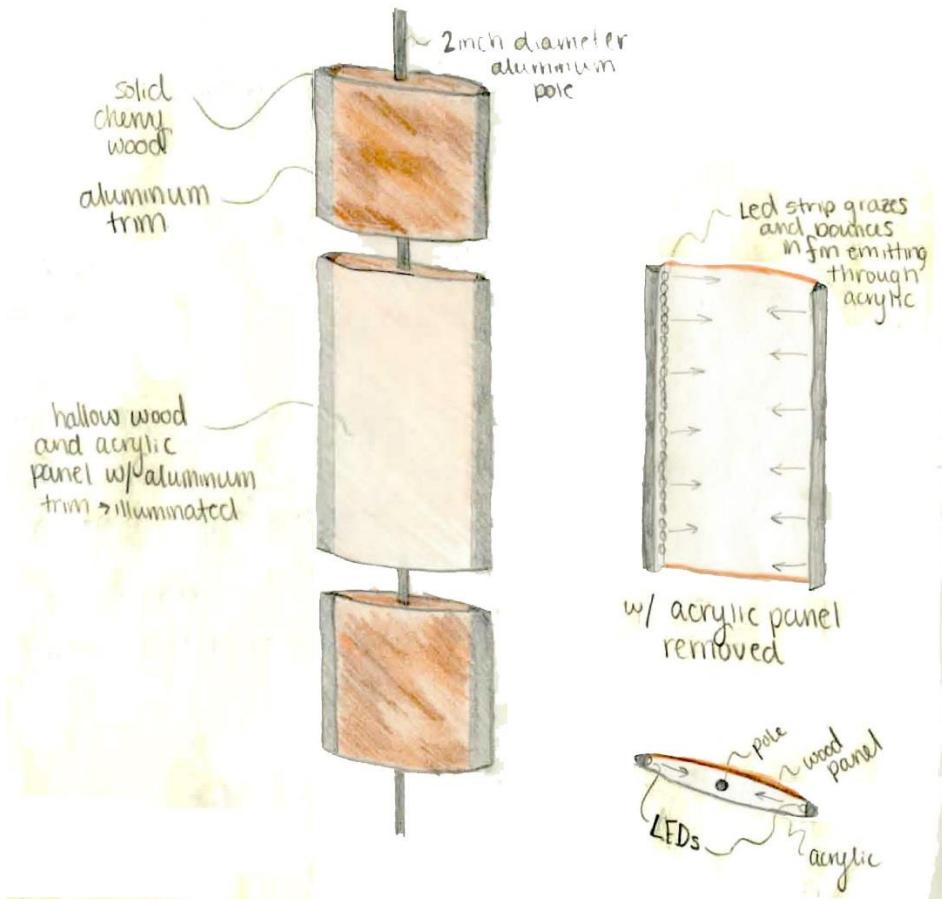 2 inch diameter
aluminum
pole
solid
cherry
wood
aluminum
trim
hallow wood
and acrylic
panel w/ aluminum
trim → illuminated
Led strip grazes
and bounces
in fm emitting
through
acrylic
w/ acrylic panel
removed
pole
wood
panel
LEDs
acrylic